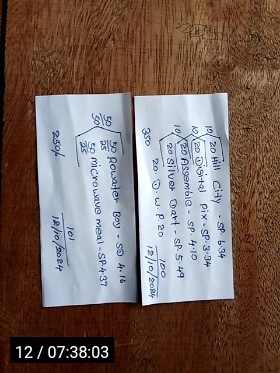 10 20 Hill City - SP. 6.34
10 20 Digital Pix - SP. 3.34
10 20 Assemble - SP. 4.10
10 20 Silver Dart - SP. 5.49
20. D. W P. 20
350
100
18/10/2024
50 50 Rowater Boy - SD 4.16
50 25 25
50 Microwave meal - SP 4.37
250/-
101
18/10/2024
12 / 07:38:03